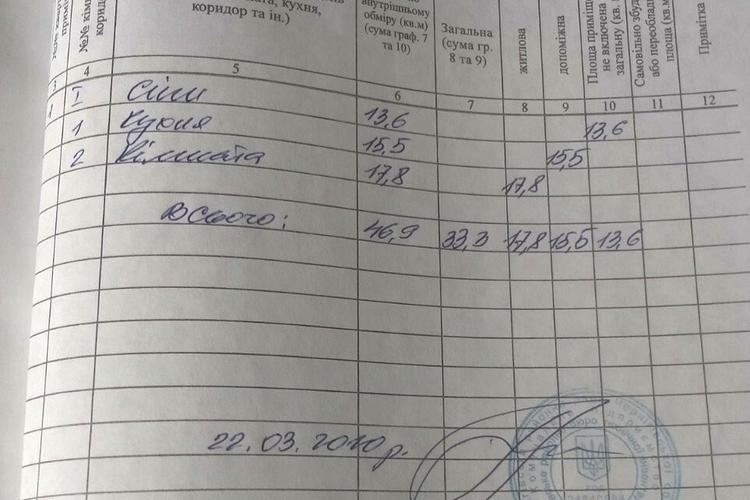 кухня,
коридор та ін.)
внутрішньому
обміру (кв.м)
(сума граф. 7
та 10)
Загальна
(сума гр.
8 та 9)
житлова
допоміжна
Площа приміщень
не включена
загальну (кв.
Самовільно
або переоблад
площа (кв.м
Примітка
3 4 5 6 7 8 9 10 11 12
1 I Сіни 13,6 13,6
1 Кухня 15,5 15,5
2 Кімната 17,8 17,8
Всього: 46,9 33,3 17,8 15,5 13,6
22.03.2010 р.